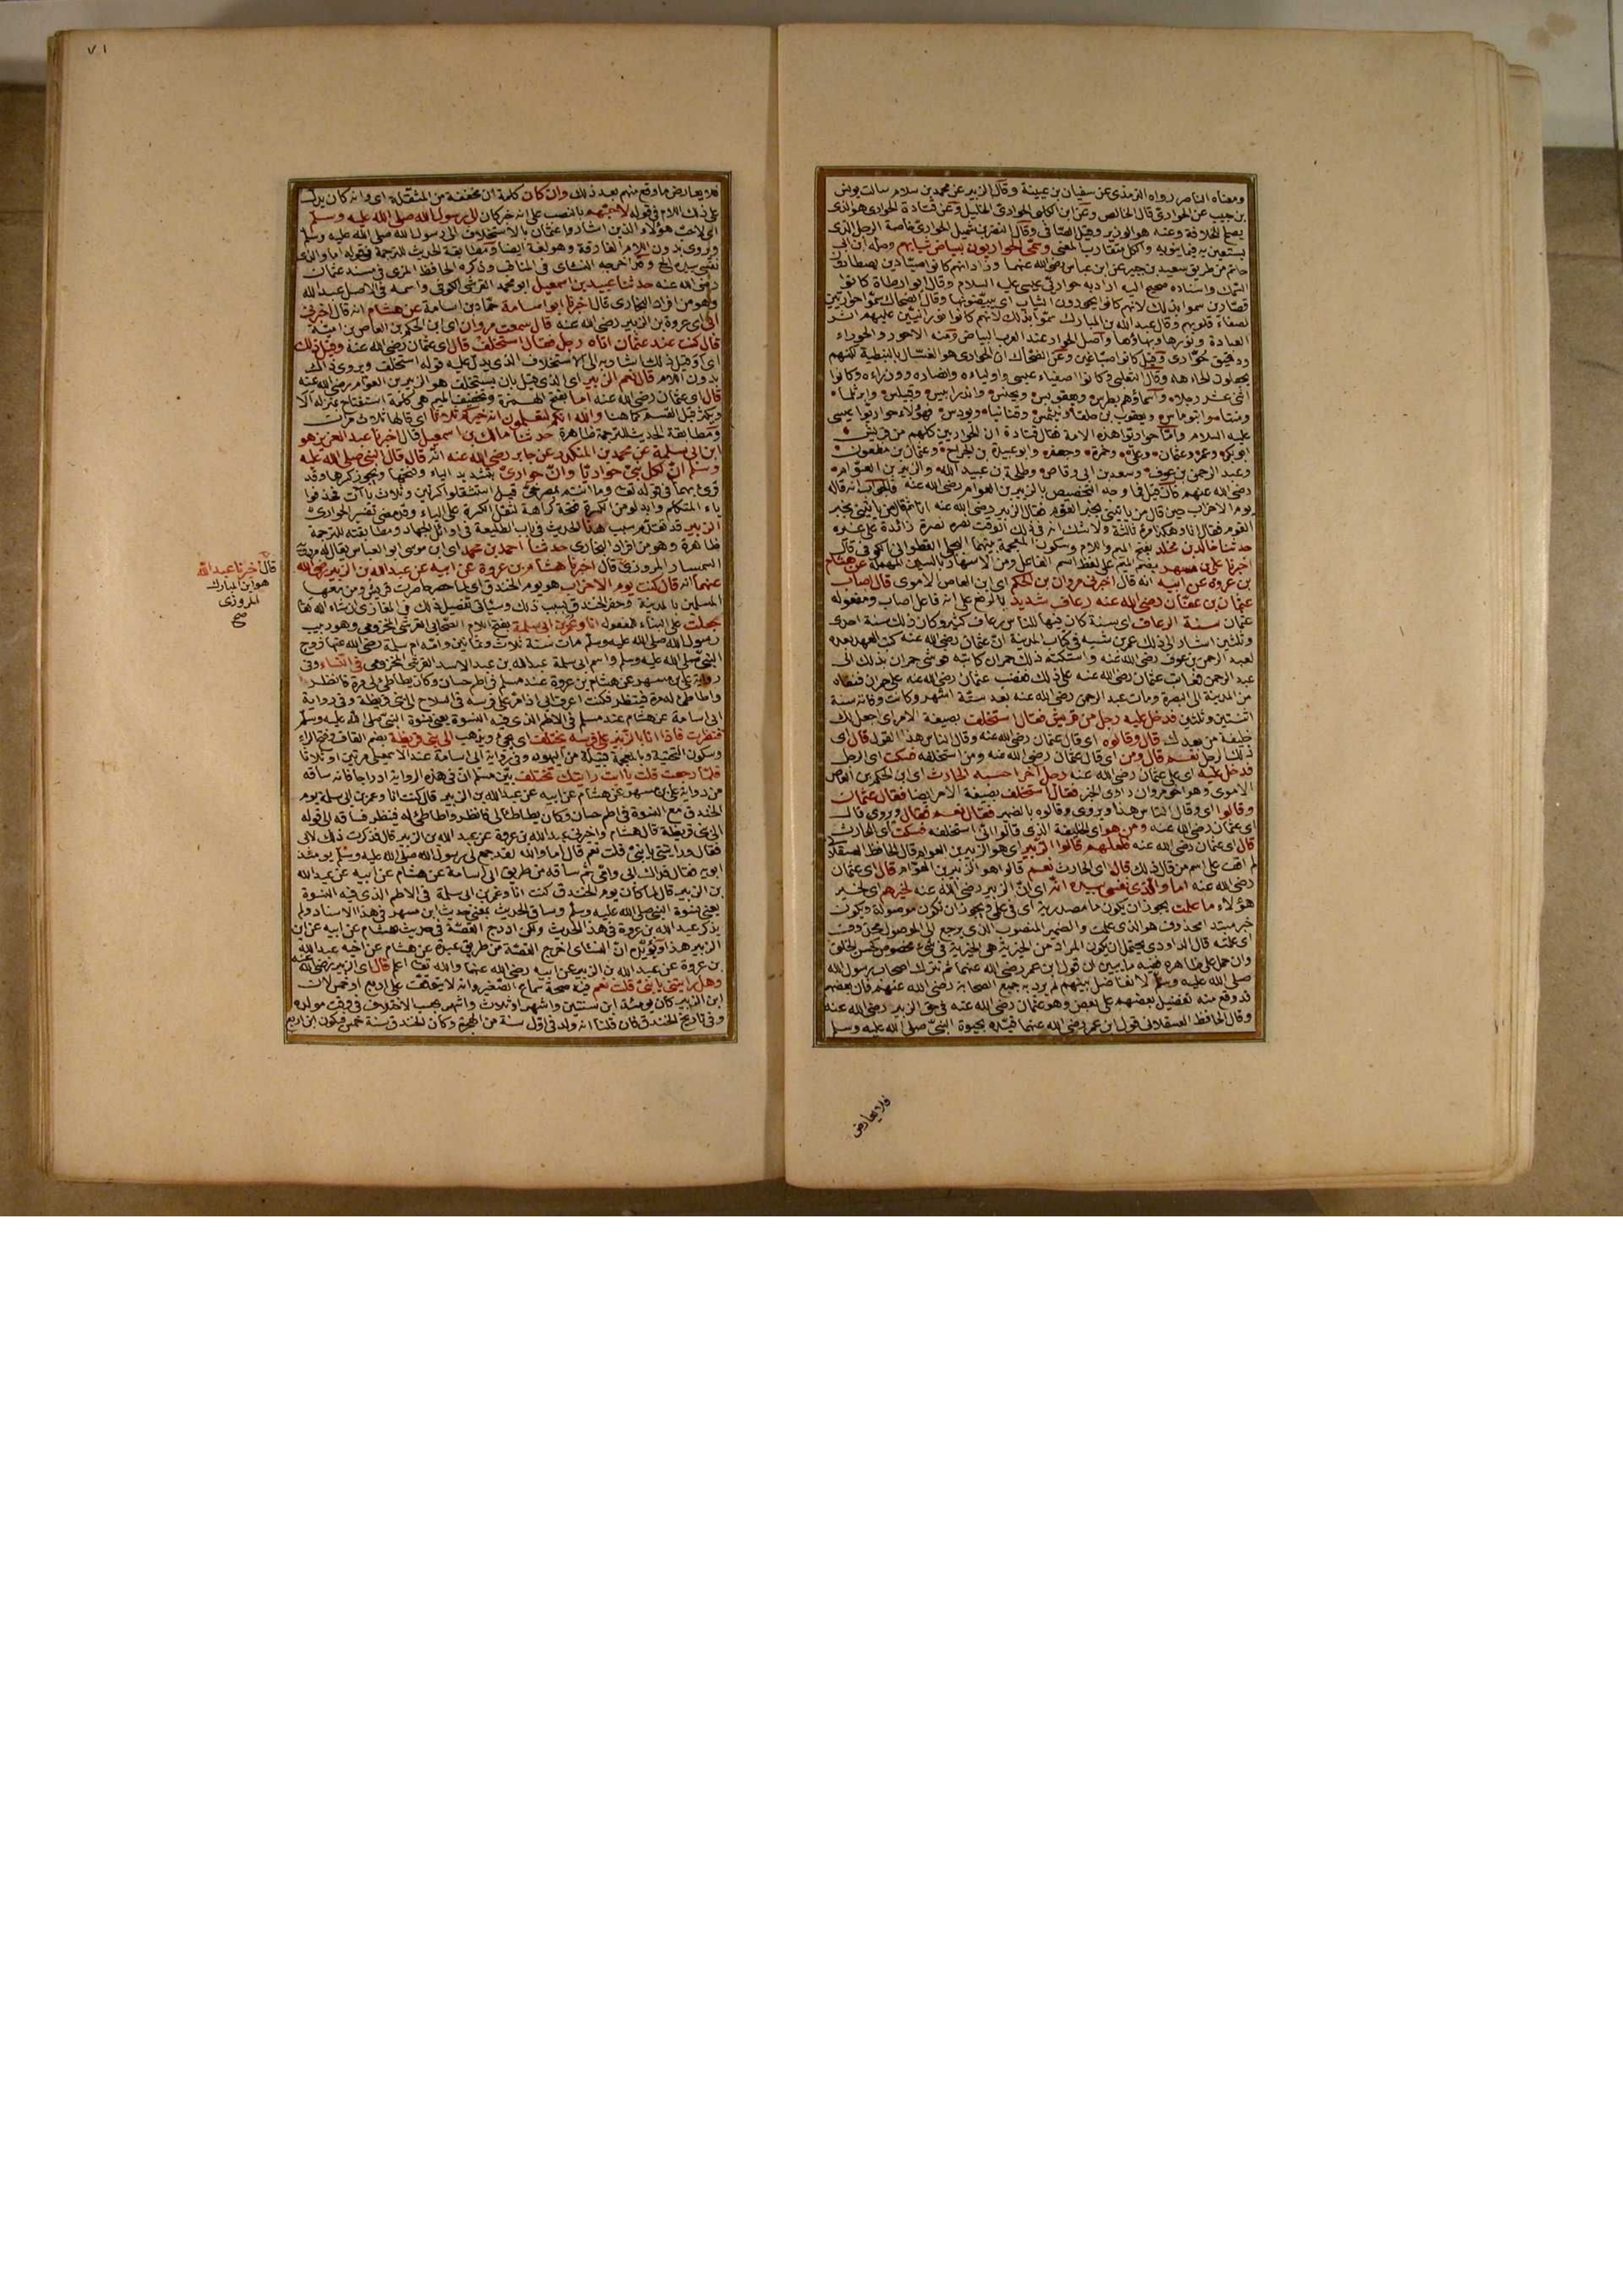 ومعناه الناصر رواه الترمذى عن سفيان بن عيينة وقال الزبير عن محمد بن سلام سالت يونس
بن حبيب عن الحوارى قال الخالص وعن ابن الكلبى الحوارى الخليل وعن قتادة الحوارى هو الذى
يصلح للخلافة وعنه هو الوزير وقيل الصافى وقال النضر بن شميل الحوارى خاصة الرجل الذى
يستعين به فيما ينوبه والكل متقارب المعنى وسمى الحواريون لبياض ثيابهم وصله ابن ابى
حاتم من طريق سعيد بن جبير عن ابن عباس رضى الله عنهما وزاد انهم كانوا صيادين يصطادون
السمك واسناده صحيح اليه اراد به حوارى عيسى عليه السلام وقال ابو ارطاة كانوا
قصارين سموا بذلك لانهم كانوا يحورون الثياب اى يبيضونها وقال الضحاك سموا حواريين
لصفاء قلوبهم وقال عبد الله بن المبارك سموا بذلك لانهم كانوا نورانيين عليهم اثر
العبادة ونورها وبهاؤها واصل الحوار عند العرب البياض ومنه الاحور والحوراء
ودقيق حوارى وقيل كانوا صباغين وعن الضحاك ان الحوارى هو الغسال بالنبطية لكنهم
يجعلون الحاء هاء وقال الثعلبى كانوا اصفياء عيسى واولياءه وانصاره ووزراءه وكانوا
اثنى عشر رجلا واسماؤهم بطرس ويعقوبس ويحنس واندرابيس وقيلس وابرثلما
ومنتا وتوماس ويعقوب بن حلقا ونشيمس وقنانيا ويودس فهؤلاء حواريوا عيسى
عليه السلام واما حواريوا هذه الامة فقال قتادة ان الحواريين كلهم من قريش
ابو بكر وعمر وعثمان وعلى وحمزة وجعفر وابو عبيدة بن الجراح وعثمان بن مظعون
وعبد الرحمن بن عوف وسعد بن ابى وقاص وطلحة بن عبيد الله والزبير بن العوام
رضى الله عنهم فان قيل فما وجه التخصيص بالزبير بن العوام رضى الله عنه فالجواب انه قاله
يوم الاحزاب حين قال من ياتينى بخبر القوم فقال الزبير رضى الله عنه انا ثم قال من ياتينى بخبر
القوم فقال انا وهكذا مرة ثالثة ولا شك انه فى ذلك الوقت نصره نصرة زائدة على غيره
حدثنا خالد بن مخلد بفتح الميم واللام وسكون المعجمة بينهما البجلى القطوانى الكوفى قال
اخبرنا على بن مسهر بضم الميم على لفظ اسم الفاعل ومن الاسهار بالسين المهملة عن هشام
بن عروة عن ابيه انه قال اخبرنى مروان بن الحكم اى ابن العاص الاموى قال اصاب
عثمان بن عفان رضى الله عنه رعاف شديد بالرفع على انه فاعل اصاب ومفعوله
عثمان سنة الرعاف اى سنة كان فيها للناس رعاف كثير وكان ذلك سنة احدى
وثلثين اشار الى ذلك عمر بن شبه فى كتاب المدينة ان عثمان رضى الله عنه كتب العهد بعده
لعبد الرحمن بن عوف رضى الله عنه واستكتم ذلك حمران كاتبه فوشى حمران بذلك الى
عبد الرحمن فعاتب عثمان رضى الله عنه على ذلك فغضب عثمان رضى الله عنه على حمران فنفاه
من المدينة الى البصرة ومات عبد الرحمن رضى الله عنه بعد ستة اشهر وكانت وفاته سنة
اثنتين وثلثين فدخل عليه رجل من قريش فقال استخلف بصيغة الامر اى اجعل لك
خليفة من بعدك قال وقالوه اى قال عثمان رضى الله عنه وقال الناس هذا القول قال اى
ذلك الرجل نعم قال ومن اى قال عثمان رضى الله عنه ومن استخلفه فسكت اى الرجل
فدخل عليه اى على عثمان رضى الله عنه رجل آخر احسبه الحارث اى ابن الحكم بن العاص
الاموى وهو اخو مروان راوى الخبر فقال استخلف بصيغة الامر ايضا فقال عثمان
وقالوا اى وقال الناس هذا ويروى وقالوه بالضمير فقال نعم فقال ويروى قال
اى عثمان رضى الله عنه ومن هو اى الخليفة الذى قالوا انى استخلفه فسكت اى الحارث
قال اى عثمان رضى الله عنه فلعلهم قالوا الزبير اى هو الزبير بن العوام قال الحافظ العسقلانى
لم اقف على اسم من قال ذلك قال اى الحارث نعم قالوا هو الزبير بن العوام قال اى عثمان
رضى الله عنه اما والذى نفسى بيده انه اى ان الزبير رضى الله عنه لخيرهم اى لخير
هؤلاء ما علمت يجوز ان يكون ما مصدرية اى فى علمى ويجوز ان تكون موصولة ويكون
خبر مبتدا محذوف هو الذى علمت والضمير المنصوب الذى يرجع الى الموصول محذوف
اى علمته قال الداودى يحتمل ان يكون المراد من الخيرية هى الخيرية فى شىء مخصوص كحسن الخلق
وان حمل على ظاهره ففيه ما يبين ان قول ابن عمر رضى الله عنهما ثم نترك اصحاب رسول الله
صلى الله عليه وسلم لا نفاضل بينهم لم يرد به جميع الصحابة رضى الله عنهم فان بعضهم
قد وقع منه تفضيل بعضهم على بعض وهو عثمان رضى الله عنه فى حق الزبير رضى الله عنه
وقال الحافظ العسقلانى قول ابن عمر رضى الله عنهما قيده بحيوة النبى صلى الله عليه وسلم
فلا يعارض
٧١
فلا يعارض ما وقع منهم بعد ذلك وان كان كلمة ان مخففة من المثقلة اى وانه كان يدل
على ذلك اللام فى قوله لاحبهم بالنصب على انه خبر كان الى رسول الله صلى الله عليه وسلم
اى لاحب هؤلاء الذين اشاروا عثمان بالاستخلاف الى رسول الله صلى الله عليه وسلم
ويروى بدون اللام الفارقة وهو لغة ايضا ومطابقة الحديث للترجمة فى قوله اما والذى
نفسى بيده الخ وقد اخرجه النسائى فى المناقب وذكره الحافظ المزى فى مسند عثمان
رضى الله عنه حدثنا عبيد بن اسمعيل ابو محمد القرشى الكوفى واسمه فى الاصل عبد الله
وهو من افراد البخارى قال اخبرنا ابو اسامة حماد بن اسامة عن هشام انه قال اخبرنى
ابى اى عروة بن الزبير رضى الله عنه قال سمعت مروان اى ابن الحكم بن العاص بن امية
قال كنت عند عثمان اتاه رجل فقال استخلف قال اى عثمان رضى الله عنه وقيل ذلك
اى وقيل ذلك اشار به الى الاستخلاف الذى يدل عليه قوله استخلف ويروى ذاك
بدون اللام قال نعم الزبير اى الذى قيل بان يستخلف هو الزبير بن العوام رضى الله عنه
قال اى عثمان رضى الله عنه اما بفتح الهمزة وتخفيف الميم هى كلمة استفتاح بمنزلة الا
ويكثر قبل القسم كما هنا والله انكم لتعلمون انه خيركم ثلاثا اى قالها ثلاث مرات
ومطابقة الحديث للترجمة ظاهرة حدثنا مالك بن اسمعيل قال اخبرنا عبد العزيز هو
ابن ابى سلمة عن محمد بن المنكدر عن جابر رضى الله عنه انه قال قال النبى صلى الله عليه
وسلم ان لكل نبى حواريا وان حوارى بتشديد الياء وفتحها ويجوز كسرها وقد
قرئ بهما فى قوله تعالى وما انتم بمصرخى قيل استثقلوا كسرتين وثلاث ياآت فحذفوا
ياء المتكلم وابدلوا من الكسرة فتحة كراهة لثقل الكسرة على الياء وقد مضى تفسير الحوارى
الزبير قد تقدم سبب هذا الحديث فى باب الطليعة فى اوائل الجهاد ومطابقته للترجمة
ظاهرة وهو من افراد البخارى حدثنا احمد بن محمد اى ابن موسى ابو العباس يقال له مردويه
السمسار المروزى قال اخبرنا هشام بن عروة عن ابيه عن عبد الله بن الزبير رضى الله
عنهما انه قال كنت يوم الاحزاب هو يوم الخندق اى لما حاصرت قريش ومن معها
المسلمين بالمدينة وحفر الخندق بسبب ذلك وسياتى تفصيل ذلك فى المغازى ان شاء الله تعالى
جعلت على البناء للمفعول انا وعمر بن ابى سلمة بفتح اللام الصحابى القرشى المخزومى وهو ربيب
رسول الله صلى الله عليه وسلم مات سنة ثلاث وثمانين وامه ام سلمة رضى الله عنها زوج
النبى صلى الله عليه وسلم واسم ابى سلمة عبد الله بن عبد الاسد القرشى المخزومى فى النساء وفى
رواية على بن مسهر عن هشام بن عروة عند مسلم فى اطم حسان وكان يطاطئ لى مرة فانظر
واطاطئ له مرة فينظر فكنت اعرف ابى اذا مر على فرسه فى السلاح الى بنى قريظة وفى رواية
ابى اسامة عن هشام عند مسلم فى الاطم الذى فيه النسوة يعنى نسوة النبى صلى الله عليه وسلم
فنظرت فاذا انا بالزبير على فرسه يختلف اى يجئ ويذهب الى بنى قريظة بضم القاف وفتح الراء
وسكون التحتية وبالمعجمة قبيلة من اليهود وفى رواية ابى اسامة عند الاسمعيلى مرتين او ثلاثا
فلما رجعت قلت يا ابت رايتك تختلف بين مسلم ان فى هذه الرواية ادراجا فانه ساقه
من رواية على بن مسهر عن هشام عن ابيه عن عبد الله بن الزبير قال كنت انا وعمر بن ابى سلمة يوم
الخندق مع النسوة فى اطم حسان وكان يطاطئ لى فانظر واطاطئ له فينظر فساقه الى قوله
الى بنى قريظة قال هشام واخبرنى عبد الله بن عروة عن عبد الله بن الزبير قال فذكرت ذلك لابى
فقال ورايتنى يا بنى قلت نعم قال اما والله لقد جمع لى رسول الله صلى الله عليه وسلم يومئذ
ابويه فقال فداك ابى وامى ثم ساقه من طريق ابى اسامة عن هشام عن ابيه عن عبد الله
بن الزبير قال لما كان يوم الخندق كنت انا وعمر بن ابى سلمة فى الاطم الذى فيه النسوة
يعنى نسوة النبى صلى الله عليه وسلم وساق الحديث بمعنى حديث ابن مسهر فى هذا الاسناد ولم
يذكر عبد الله بن عروة فى هذا الحديث ولكن ادرج القصة فى حديث هشام عن ابيه عن ابن
الزبير هذا ويؤيده ان النسائى اخرج القصة من طريق عبدة عن هشام عن اخيه عبد الله
بن عروة عن عبد الله بن الزبير عن ابيه رضى الله عنهما والله تعالى اعلم قال اى الزبير رضى الله عنه
وهل رايتنى يا بنى قلت نعم فيه صحة سماع الصغير وانه لا يتوقف على اربع او خمس لان
ابن الزبير كان يومئذ ابن سنتين واشهر او ثلاث واشهر بحسب الاختلاف فى وقت مولده
وفى تاريخ الخندق فان قلنا انه ولد فى اول سنة من الهجرة وكان الخندق سنة خمس فيكون ابن اربع
قال اخبرنا عبد الله
هو ابن المبارك
المروزى
صح